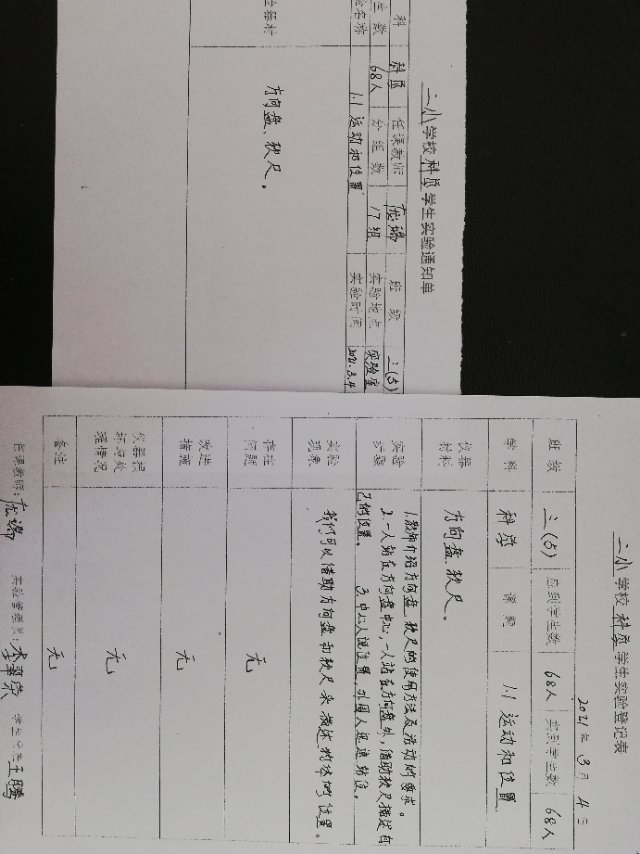 二小学校科学学生实验通知单
科
科学
任课教师
班级
三(5)
生数
68人
分组数
17组
实验地点
实验室
验名称
1.1 运动和位置
实验时间
2021.3.4
器材
方向盘、软尺。
二小学校科学学生实验登记表
2021年3月4日
班级
三(5)
应到学生数
68人
实到学生数
68人
学科
科学
课题
1.1 运动和位置
仪器材料
方向盘、软尺。
实验步骤
1.教师介绍方向盘、软尺的使用方法及活动的要求。
2.一人站在方向盘中心,一人站在方向盘外,借助软尺描述自
己的位置。 3.中心人说位置,外围人迅速站位。
实验现象
我们可以借助方向盘和软尺来描述物体的位置。
存在问题
无
改进措施
无
仪器损坏与处理情况
无
备注
无
任课教师: 实验管理员:李翠荣 学生代表:王腾